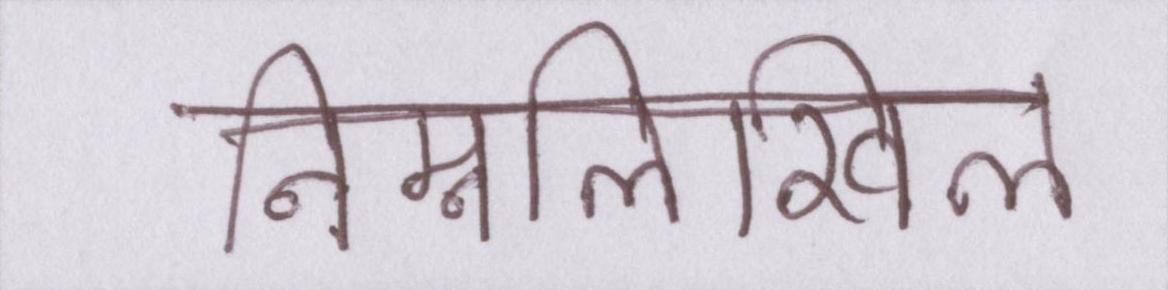 निम्नलिखिल